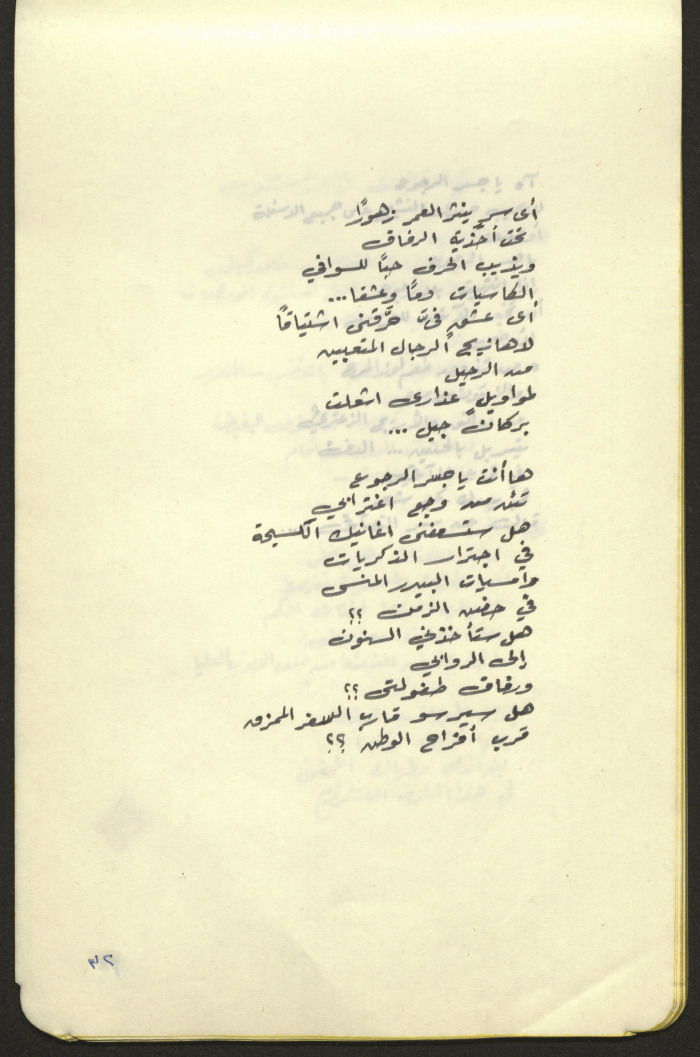 أى سرٍ ينثر العمر زهورًا
تحت أحذية الرفاق
ويذيب الحرف حبًا للسوافي
الكاسيات دمًا وعشقا...
أى عشقٍ فىَّ حرَّقنى اشتياقًا
لاهازيج الرجال المتعبين
من الرحيل
لمواويل عذارى اشعلت
بركان جيل ...
ها أنت يا جسر الرجوع
تئن من وجع اغترابي
هل ستسعفنى اغانيك الكسيحة
في اجترار الذكريات
وأمسيات البيدر المنسى
في حضن الزمن ؟؟
هل ستأخذني السنون
إلى الروابي
ورفاق طفولتى ؟؟
هل سيرسو قارب السفر الممزق
قرب أفراح الوطن ؟؟
٣٢